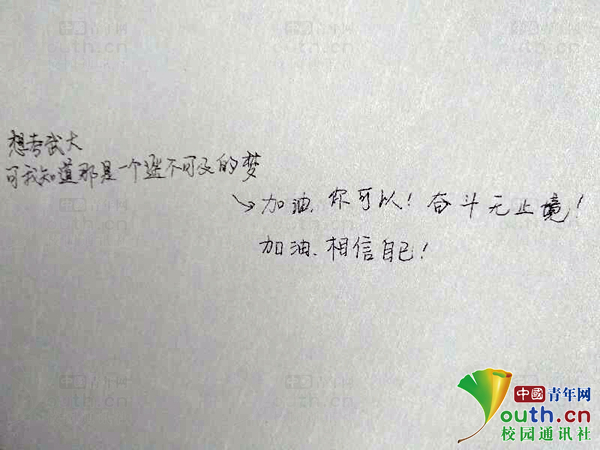 想考武大
可我知道那是一个遥不可及的梦
→加油,你可以!奋斗无止境!
加油,相信自己!
中國青年网
youth.cn
校园通讯社